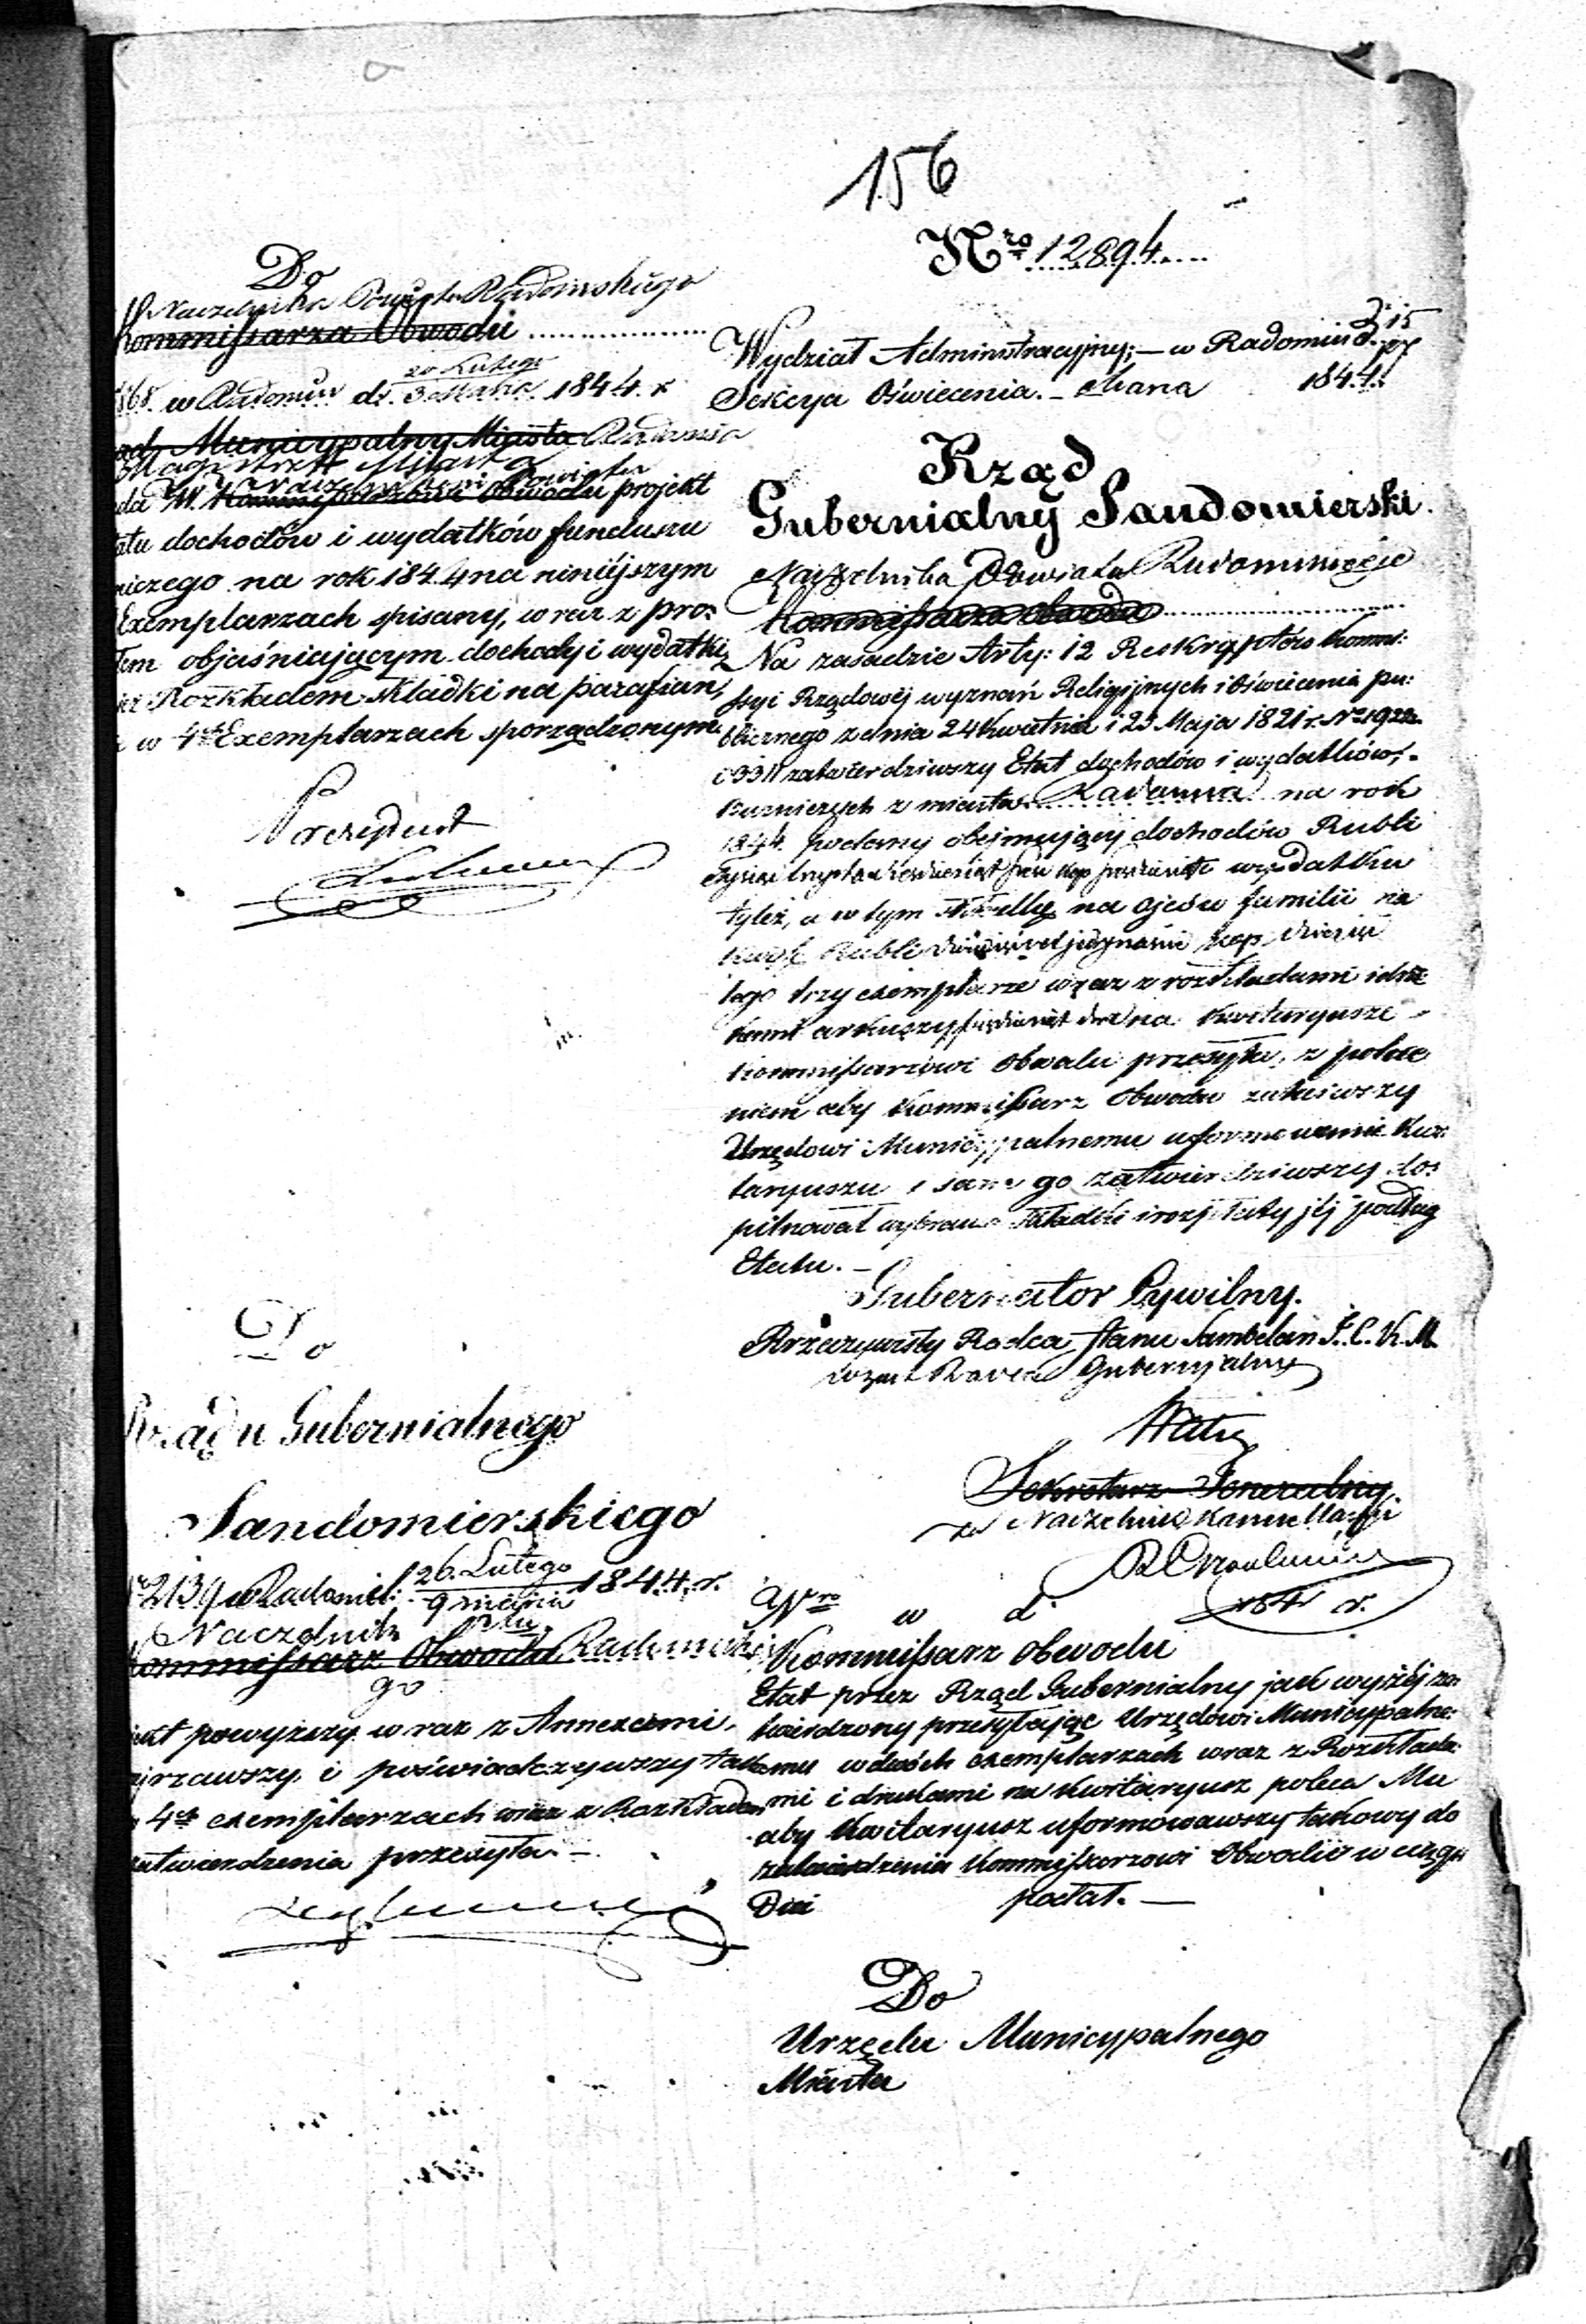 156
Do
Naczelnika Powiatu Radomskiego
Kommissarza Obwodu
w Radomiu d. 20 Lutego / 3 Marca 1844 r
Municypalny Miasta Radomia
Magistrat Miasta
W. Naczelnikowi Powiatu projekt
dochodów i wydatków funduszu
na rok 1844 na niniéjszym
Exemplarzach spisany, wraz z pro-
objaśniającym dochody i wydatki,
Rozkładem składki na parafian,
w 4ch Exemplarzach sporządzonym
Prezydent
Do
Rządu Gubernialnego
Sandomierskiego
2139 w Radomiu d. 26 Lutego / 9 Marca 1844 r.
Naczelnik Ptu
Kommissarz Obwodu Radomskie
go
powyższy wraz z Annexami
i poświadczywszy takowy
4ch exemplarzach wraz z Rozkładem
zatwierdzenia przesyła. —
Nro 12894
Wydział Administracyjny; — w Radomiu d. 3/15
Sekcya Oświecenia. — Marca 1844
Rząd
Gubernialny Sandomierski.
Naczelnika Powiatu Radomskiego
Kommissarza Obwodu
Na zasadzie Arty: 12 Reskryptów Kommi:
ssyi Rządowéj wyznań Religijnych i Oświecenia pu:
blicznego z dnia 24 Kwietnia i 23 Maja 1821 r. No 1922.
zatwierdziwszy Etat dochodów i wydatków,
z miasta Radomia na rok
1844. podany obejmujący dochodów Rubli
wydatku
tyleż, a w tym składkę na ojców familii na
Rubli dziewięćset jedynaście kop. dziesięć
tego trzy exemplarze wraz z rozkładami i dru
kami arkuszy pięćdziesiąt dwa na Kwitaryusze
Kommissarzowi Obwodu przesyła, z polece
niem aby Kommissarz Obwodu zaleciwszy
Urzędowi Municypalnemu uformowanie Kwi:
taryuszu i sam go zatwierdziwszy do:
pilnował wybrania składki i rozpłaty jéj podług
Etatu. —
Gubernator Cywilny.
Rzeczywisty Radca Stanu Szambelan J. C. K. M.
Radca Gubernialny
Sekretarz Jeneralny.
za Naczelnik Kancellaryi
Nro w d. 184 r.
Kommissarz Obwodu
Etat przez Rząd Gubernialny jak wyżéj za:
twierdzony przesyłając Urzędowi Municypalne:
mu w dwóch exemplarzach wraz z Rozkłada:
mi i drukami na Kwitaryusz poleca Mu
aby Kwitaryusz uformowawszy takowy do
zatwierdzenia Kommissarzowi Obwodu w ciągu
Dni podał. —
Do
Urzędu Municypalnego
Miasta